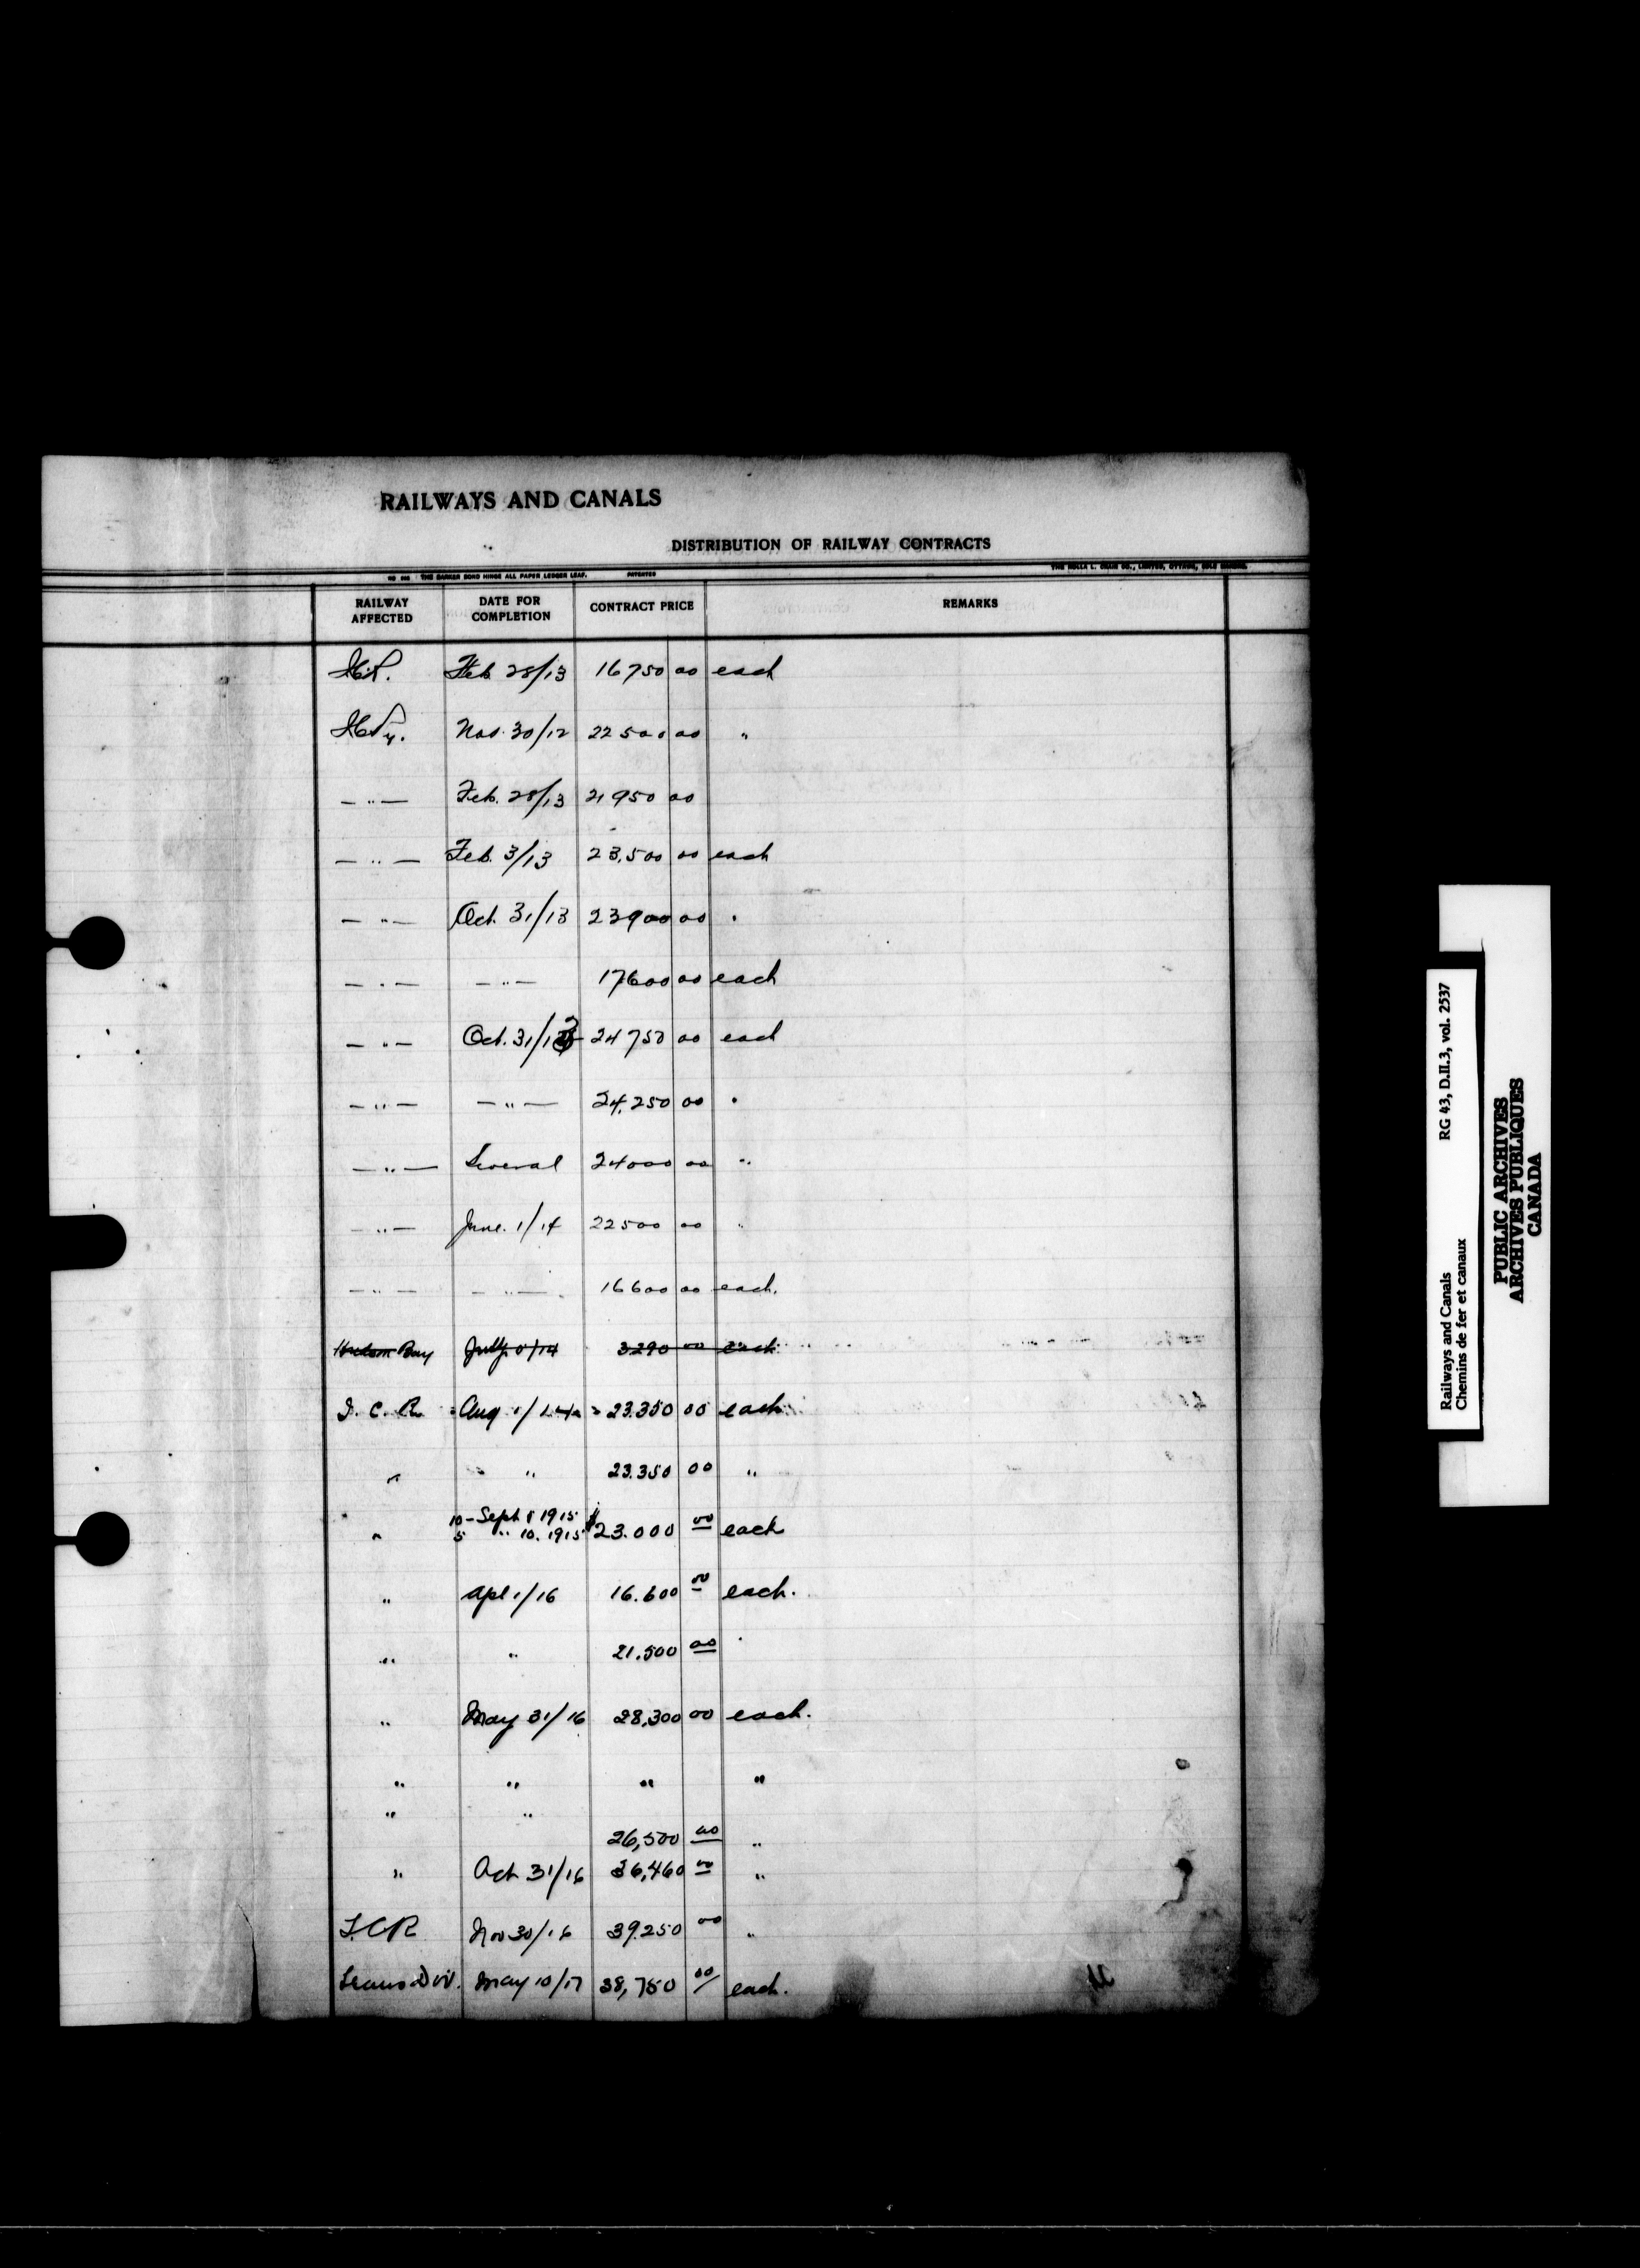 RAILWAYS AND CANALS
DISTRIBUTION OF RAILWAY CONTRACTS
THE BARKER BOND HINGE ALL PAPER LEDGER LEAF. PATENTED
RAILWAY AFFECTED DATE FOR COMPLETION CONTRACT PRICE REMARKS
Feb 28/13 16750 00 each
Nov. 30/12 22500 00 "
— " — Feb. 28/13 21950 00
— " — Feb. 3/13 23,500 00 each
— " — Oct. 31/13 23900 00 "
— " — — " — 17600 00 each
— " — Oct. 31/13 24750 00 each
— " — — " — 24,250 00 "
— " — Several 24000 00 "
— " — June. 1/14 22500 00 "
— " — — " — 16600 00 each.
Hudson Bay July 0/14 3290 00 each
I. C. R. Aug 1/14 23.350 00 each
" " 23.350 00 "
10 - Sept 8 1915
" 5 " 10. 1915 $23.000 00 each
" Apl 1/16 16.600 00 each.
" " 21.500 00 "
" May 31/16 28,300 00 each.
" " " "
" "
26,500 00 "
" Oct 31/16 36,460 00 "
I.C.R Nov 30/16 39.250 00 "
Trans Div. May 10/17 38,750 00 each.
Railways and Canals RG 43, D.II.3, vol. 2537
Chemins de fer et canaux
PUBLIC ARCHIVES
ARCHIVES PUBLIQUES
CANADA